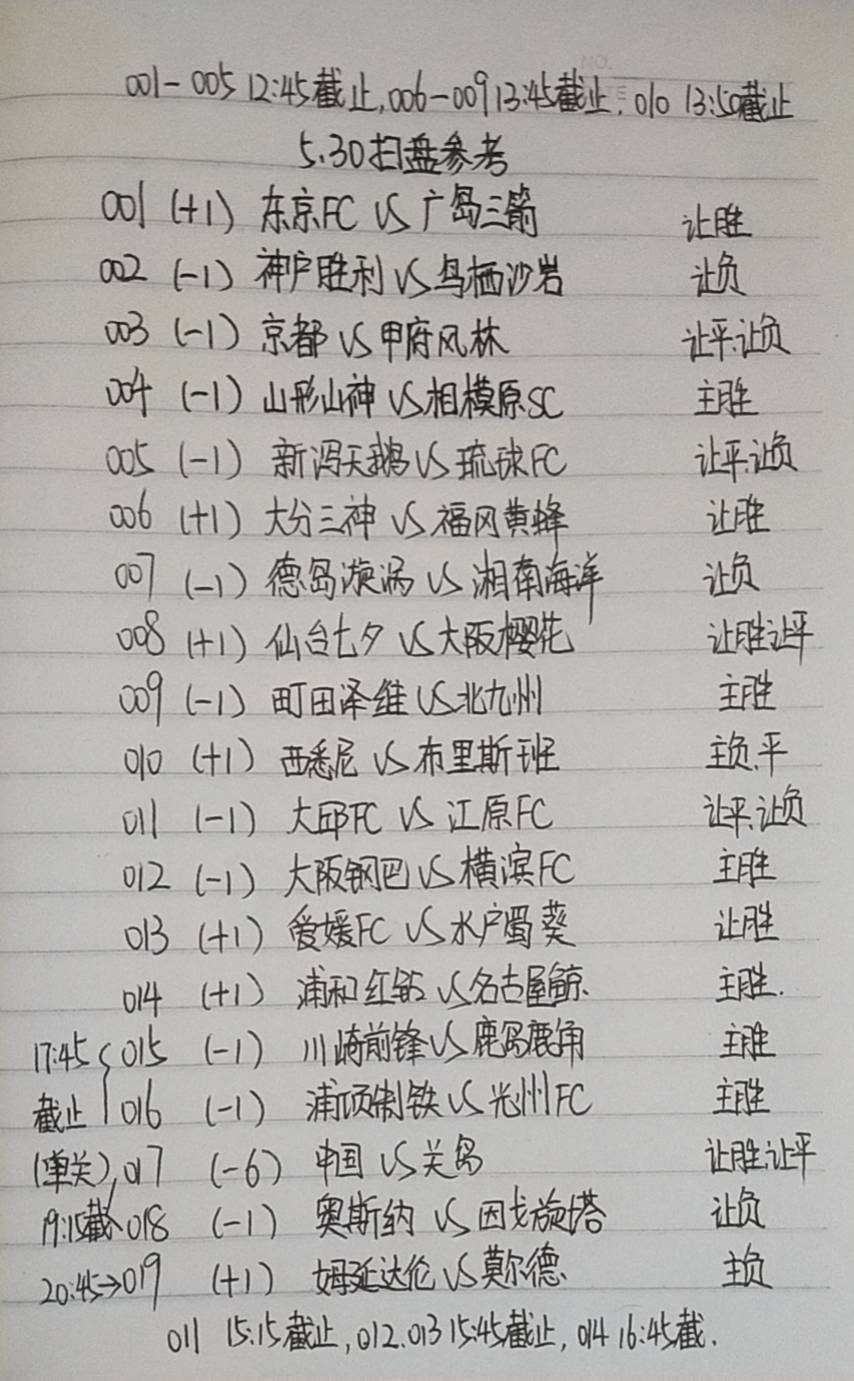 001-005 12:45截止,006-009 13:45截止. 010 13:50截止
5.30扫盘参考
001 (+1) 东京FC VS 广岛三箭 让胜
002 (-1) 神户胜利 VS 鸟栖沙岩 让负
003 (-1) 京都 VS 甲府风林 让平.让负
004 (-1) 山形山神 VS 相模原SC 主胜
005 (-1) 新泻天鹅 VS 琉球FC 让平.让负
006 (+1) 大分三神 VS 福冈黄蜂 让胜
007 (-1) 德岛漩涡 VS 湘南海洋 让负
008 (+1) 仙台七夕 VS 大阪樱花 让胜让平
009 (-1) 町田泽维 VS 北九州 主胜
010 (+1) 西悉尼 VS 布里斯班 主负.平
011 (-1) 大邱FC VS 江原FC 让平.让负
012 (-1) 大阪钢巴 VS 横滨FC 主胜
013 (+1) 爱媛FC VS 水户蜀葵 让胜
014 (+1) 浦和红钻 VS 名古屋鲸. 主胜.
17:45 015 (-1) 川崎前锋 VS 鹿岛鹿角 主胜
截止 016 (-1) 浦项制铁 VS 光州FC 主胜
(单关) 017 (-6) 中国 VS 关岛 让胜.让平
19:15截 018 (-1) 奥斯纳 VS 因戈旋塔 让负
20:45→019 (+1) 姆延达伦 VS 莫尔德. 主负
011 15:15截止,012.013 15:45截止, 014 16:45截.